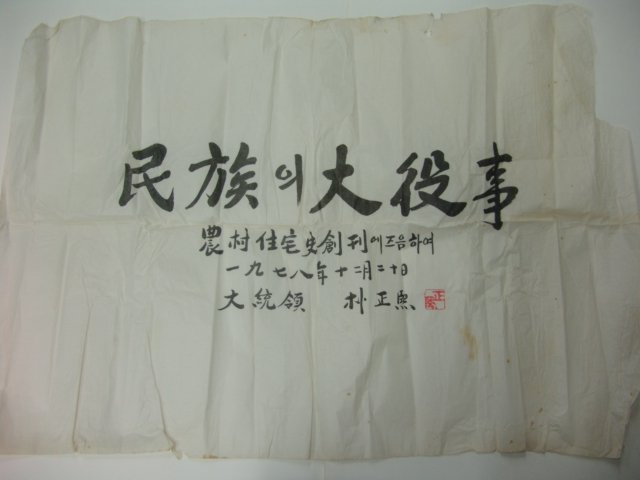 民族의大役事
農村住宅史創刊에즈음하여
一九七八年十二月二十日
大統領 朴正熙